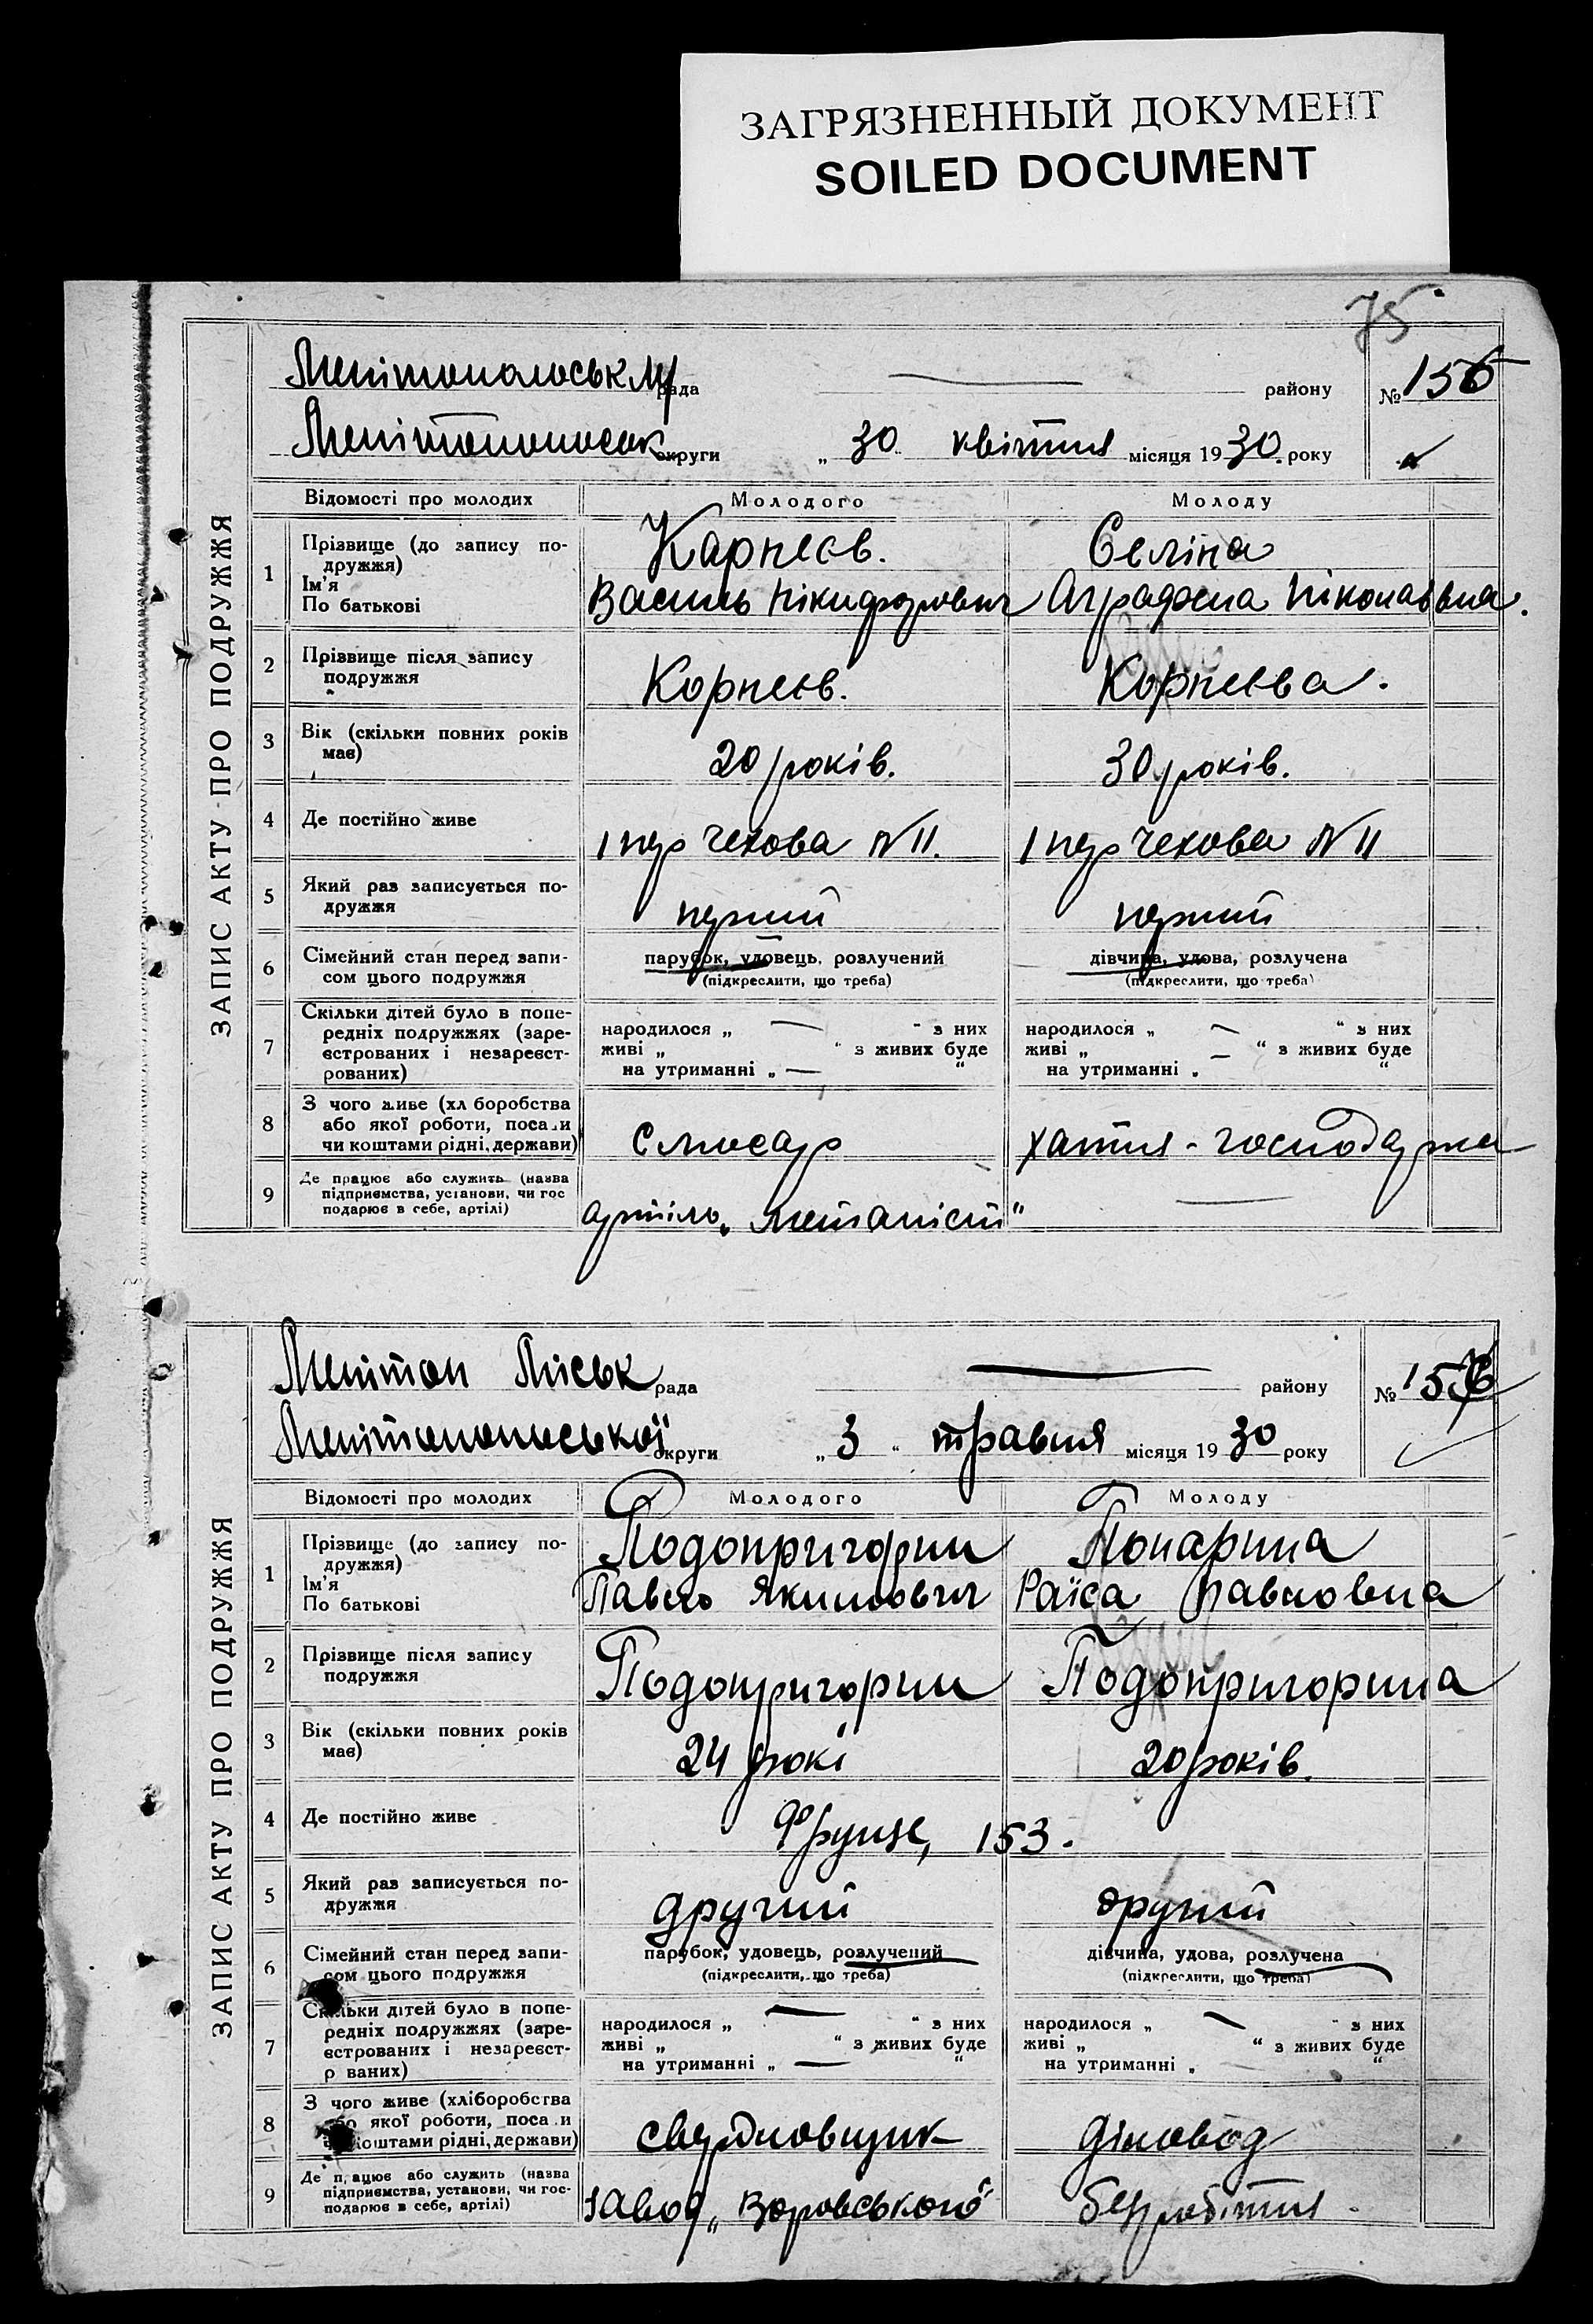 ЗАГРЯЗНЕННЫЙ ДОКУМЕНТ
SOILED DOCUMENT
75
ЗАПИС АКТУ ПРО ПОДРУЖЖЯ
рада району №
округи „30“ квітня місяця 1930. року
Відомості про молодих Молодого Молоду
1 Прізвище (до запису по-
дружжя)
Ім'я
По батькові
Карнеєв. Селіна
Василь Нікифорович Аграфена Ніколаєвна.
2 Прізвище після запису
подружжя
Корнеєв. Корнеєва.
3 Вік (скільки повних років
має)
20 років. 30 років.
4 Де постійно живе
1 пер Чехова N 11. 1 пер Чехова N 11
5 Який раз записується по-
дружжя
перший перший
6 Сімейний стан перед запи-
сом цього подружжя
парубок, удовець, розлучений дівчина, удова, розлучена
(підкреслити, що треба) (підкреслити, що треба)
7 Скільки дітей було в попе-
редніх подружжях (заре-
єстрованих і незареєст-
рованих)
народилося „ — “ з них народилося „ — “ з них
живі „ “ з живих буде живі „ — “ з живих буде
на утриманні „ — “ на утриманні „ “
8 З чого живе (хл боробства
або якої роботи, поса и
чи коштами рідні, держави)
Слюсар хатня - господарка
9 Де працює або служить (назва
підприємства, установи, чи гос
подарює в себе, артілі)
артіль „Металіст“ —
ЗАПИС АКТУ ПРО ПОДРУЖЖЯ
Меліт́оп Міськ рада — району №
Мелітопольської округи „3“ травня місяця 1930 року
Відомості про молодих Молодого Молоду
1 Прізвище (до запису по-
дружжя)
Ім'я
По батькові
Подопригорин Понарина
Павло Якимович Раїса Павловна
2 Прізвище після запису
подружжя
Подопригорин Подопригорина
3 Вік (скільки повних років
має)
24 роки 20 років.
4 Де постійно живе
Фрунзе, 153.
5 Який раз записується по-
дружжя
другий другий
6 Сімейний стан перед запи-
сом цього подружжя
парубок, удовець, розлучений дівчина, удова, розлучена
(підкреслити, що треба) (підкреслити, що треба)
7 Скільки дітей було в попе-
редніх подружжях (заре-
єстрованих і незареєст-
р ваних)
народилося „ — “ з них народилося „ — “ з них
живі „ “ з живих буде живі „ “ з живих буде
на утриманні „ — “ на утриманні „ “
8 З чого живе (хліборобства
або якої роботи, поса и
чи коштами рідні, держави)
свердловщик діловод
9 Де працює або служить (назва
підприємства, установи, чи гос-
подарює в себе, артілі)
завод „Воровського“ безробітня.